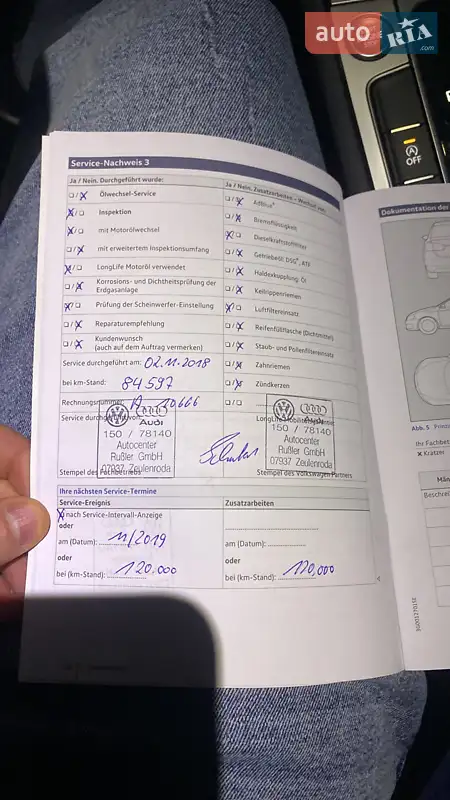 auto RIA .com
OFF
Service-Nachweis 3
Ja / Nein. Durchgeführt wurde:
Ölwechsel-Service
Inspektion
mit Motorölwechsel
mit erweitertem Inspektionsumfang
LongLife Motoröl verwendet
Korrosions- und Dichtheitsprüfung der
Erdgasanlage
Prüfung der Scheinwerfer-Einstellung
Reparaturempfehlung
Kundenwunsch
(auch auf dem Auftrag vermerken)
Service durchgeführt am: 02.11.2018
bei km-Stand: 84 597
Rechnungsnummer: A 10666
Service durchgeführt von:
Audi
150 / 78140
Autocenter
Rußler GmbH
07937 Zeulenroda
Stempel des Fachbetriebs
Ja / Nein. Zusatzarbeiten – Wechsel von:
AdBlue®
Bremsflüssigkeit
Dieselkraftstofffilter
Getriebeöl DSG®, ATF
Haldexkupplung: Öl
Keilrippenriemen
Luftfiltereinsatz
Reifenfüllflasche (Dichtmittel)
Staub- und Pollenfiltereinsatz
Zahnriemen
Zündkerzen
Audi
150 / 78140
Autocenter
Rußler GmbH
07937 Zeulenroda
Stempel des Volkswagen Partners
Ihre nächsten Service-Termine
Service-Ereignis
nach Service-Intervall-Anzeige
oder
am (Datum): 11/2019
oder
bei (km-Stand): 120.000
Zusatzarbeiten
am (Datum):
oder
bei (km-Stand): 120.000
Dokumentation der
Abb. 5
Ihr Fachbet
× Kratzer
Män
Beschrei